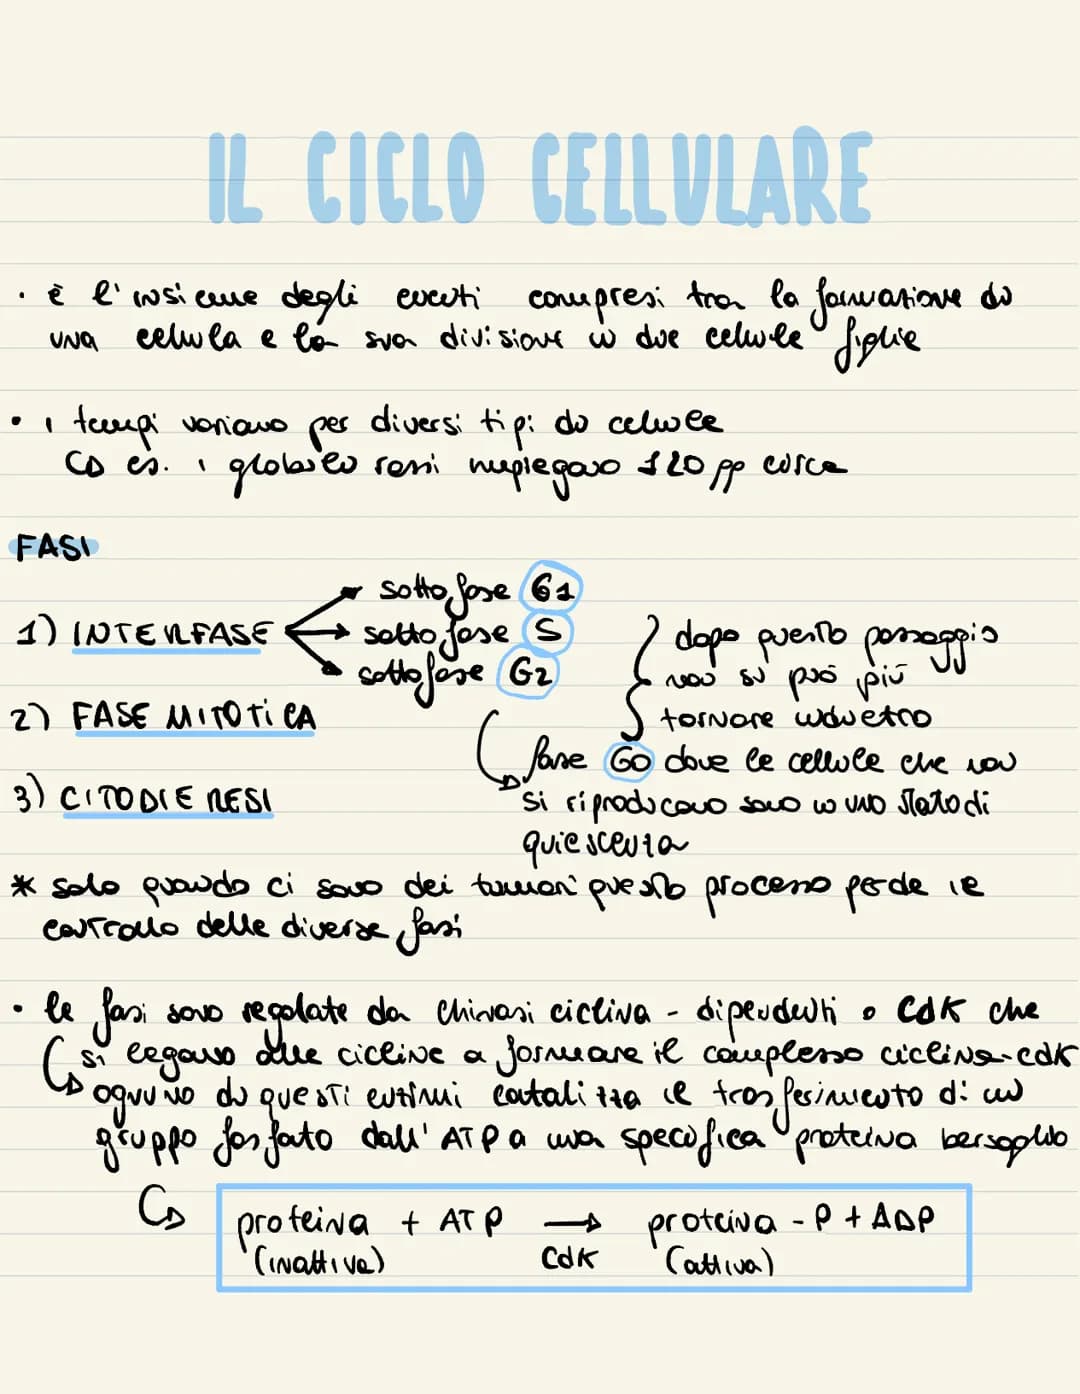 IL CICLO CELLULARE
• è l'insieme degli eventi compresi tra la formazione di
una cellula e la sua divisione in due cellule figlie
• i tempi variano per diversi tipi di cellule
es. i globuli rossi impiegano 120 gg circa
FASI
sottofase G1
1) INTERFASE sottofase S
sottofase G2
dopo questo passaggio
non si può più
tornare indietro
2) FASE MITOTICA
fase G0 dove le cellule che non
si riproducono sono in uno stato di
quiescenza
3) CITODIERESI
* solo quando ci sono dei tumori questo processo perde il
controllo delle diverse fasi
• le fasi sono regolate da chinasi ciclina - dipendenti o CdK che
si legano alle cicline a formare il complesso ciclina-cdk
ognuno di questi enzimi catalizza il trasferimento di un
gruppo fosfato dall'ATP a una specifica proteina bersaglio
proteina + ATP → proteina - P + ADP
(inattiva) CdK (attiva)